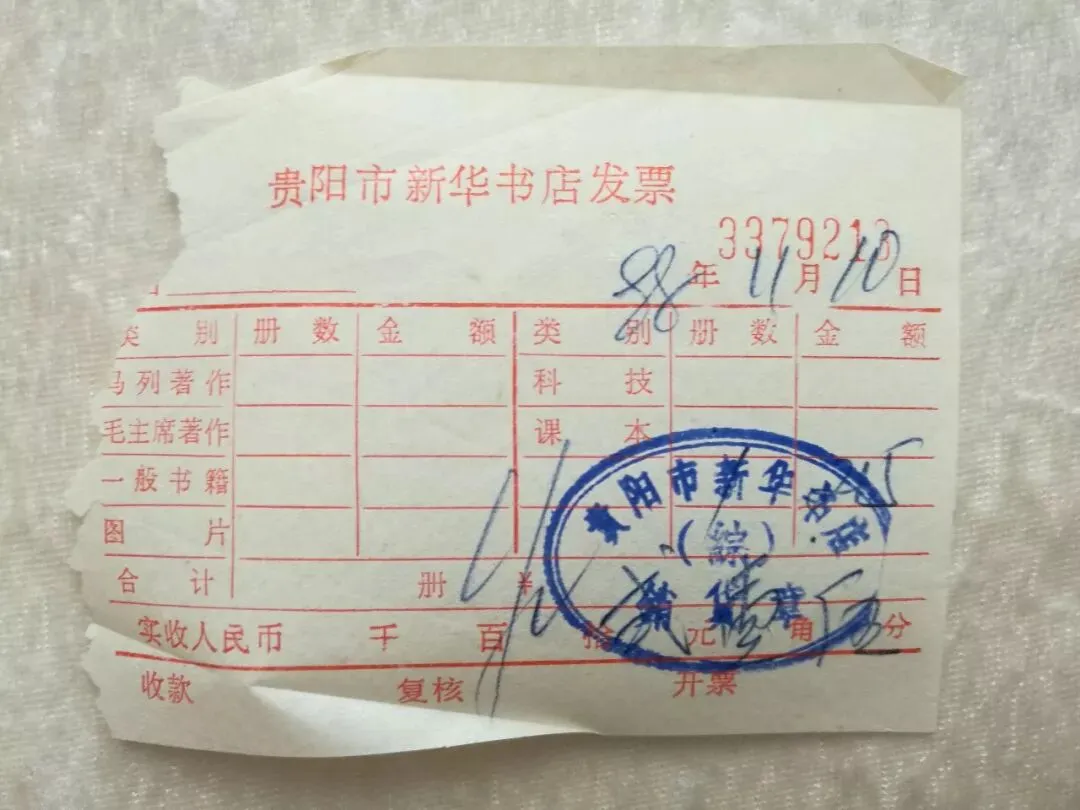 贵阳市新华书店发票
3379213
88年11月10日
类别 册数 金额 类别 册数 金额
马列著作 科技
毛主席著作 课本
一般书籍
图片
合计 册 ¥
实收人民币 千 百 拾 元 角 分
收款 复核 开票
贵阳市新华书店
(综)